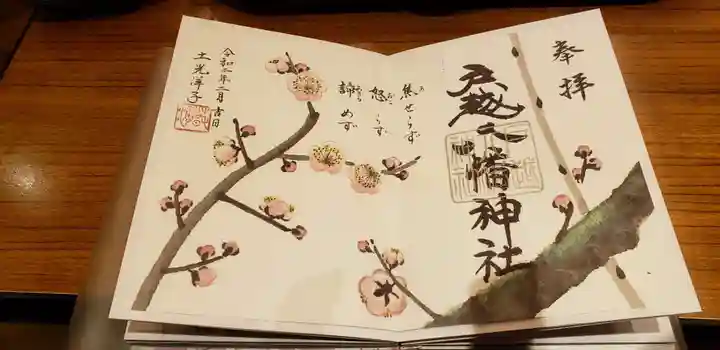 奉拝
戸越八幡神社
焦せらず
怒らず
諦めず
令和二年二月吉日
土光洋子